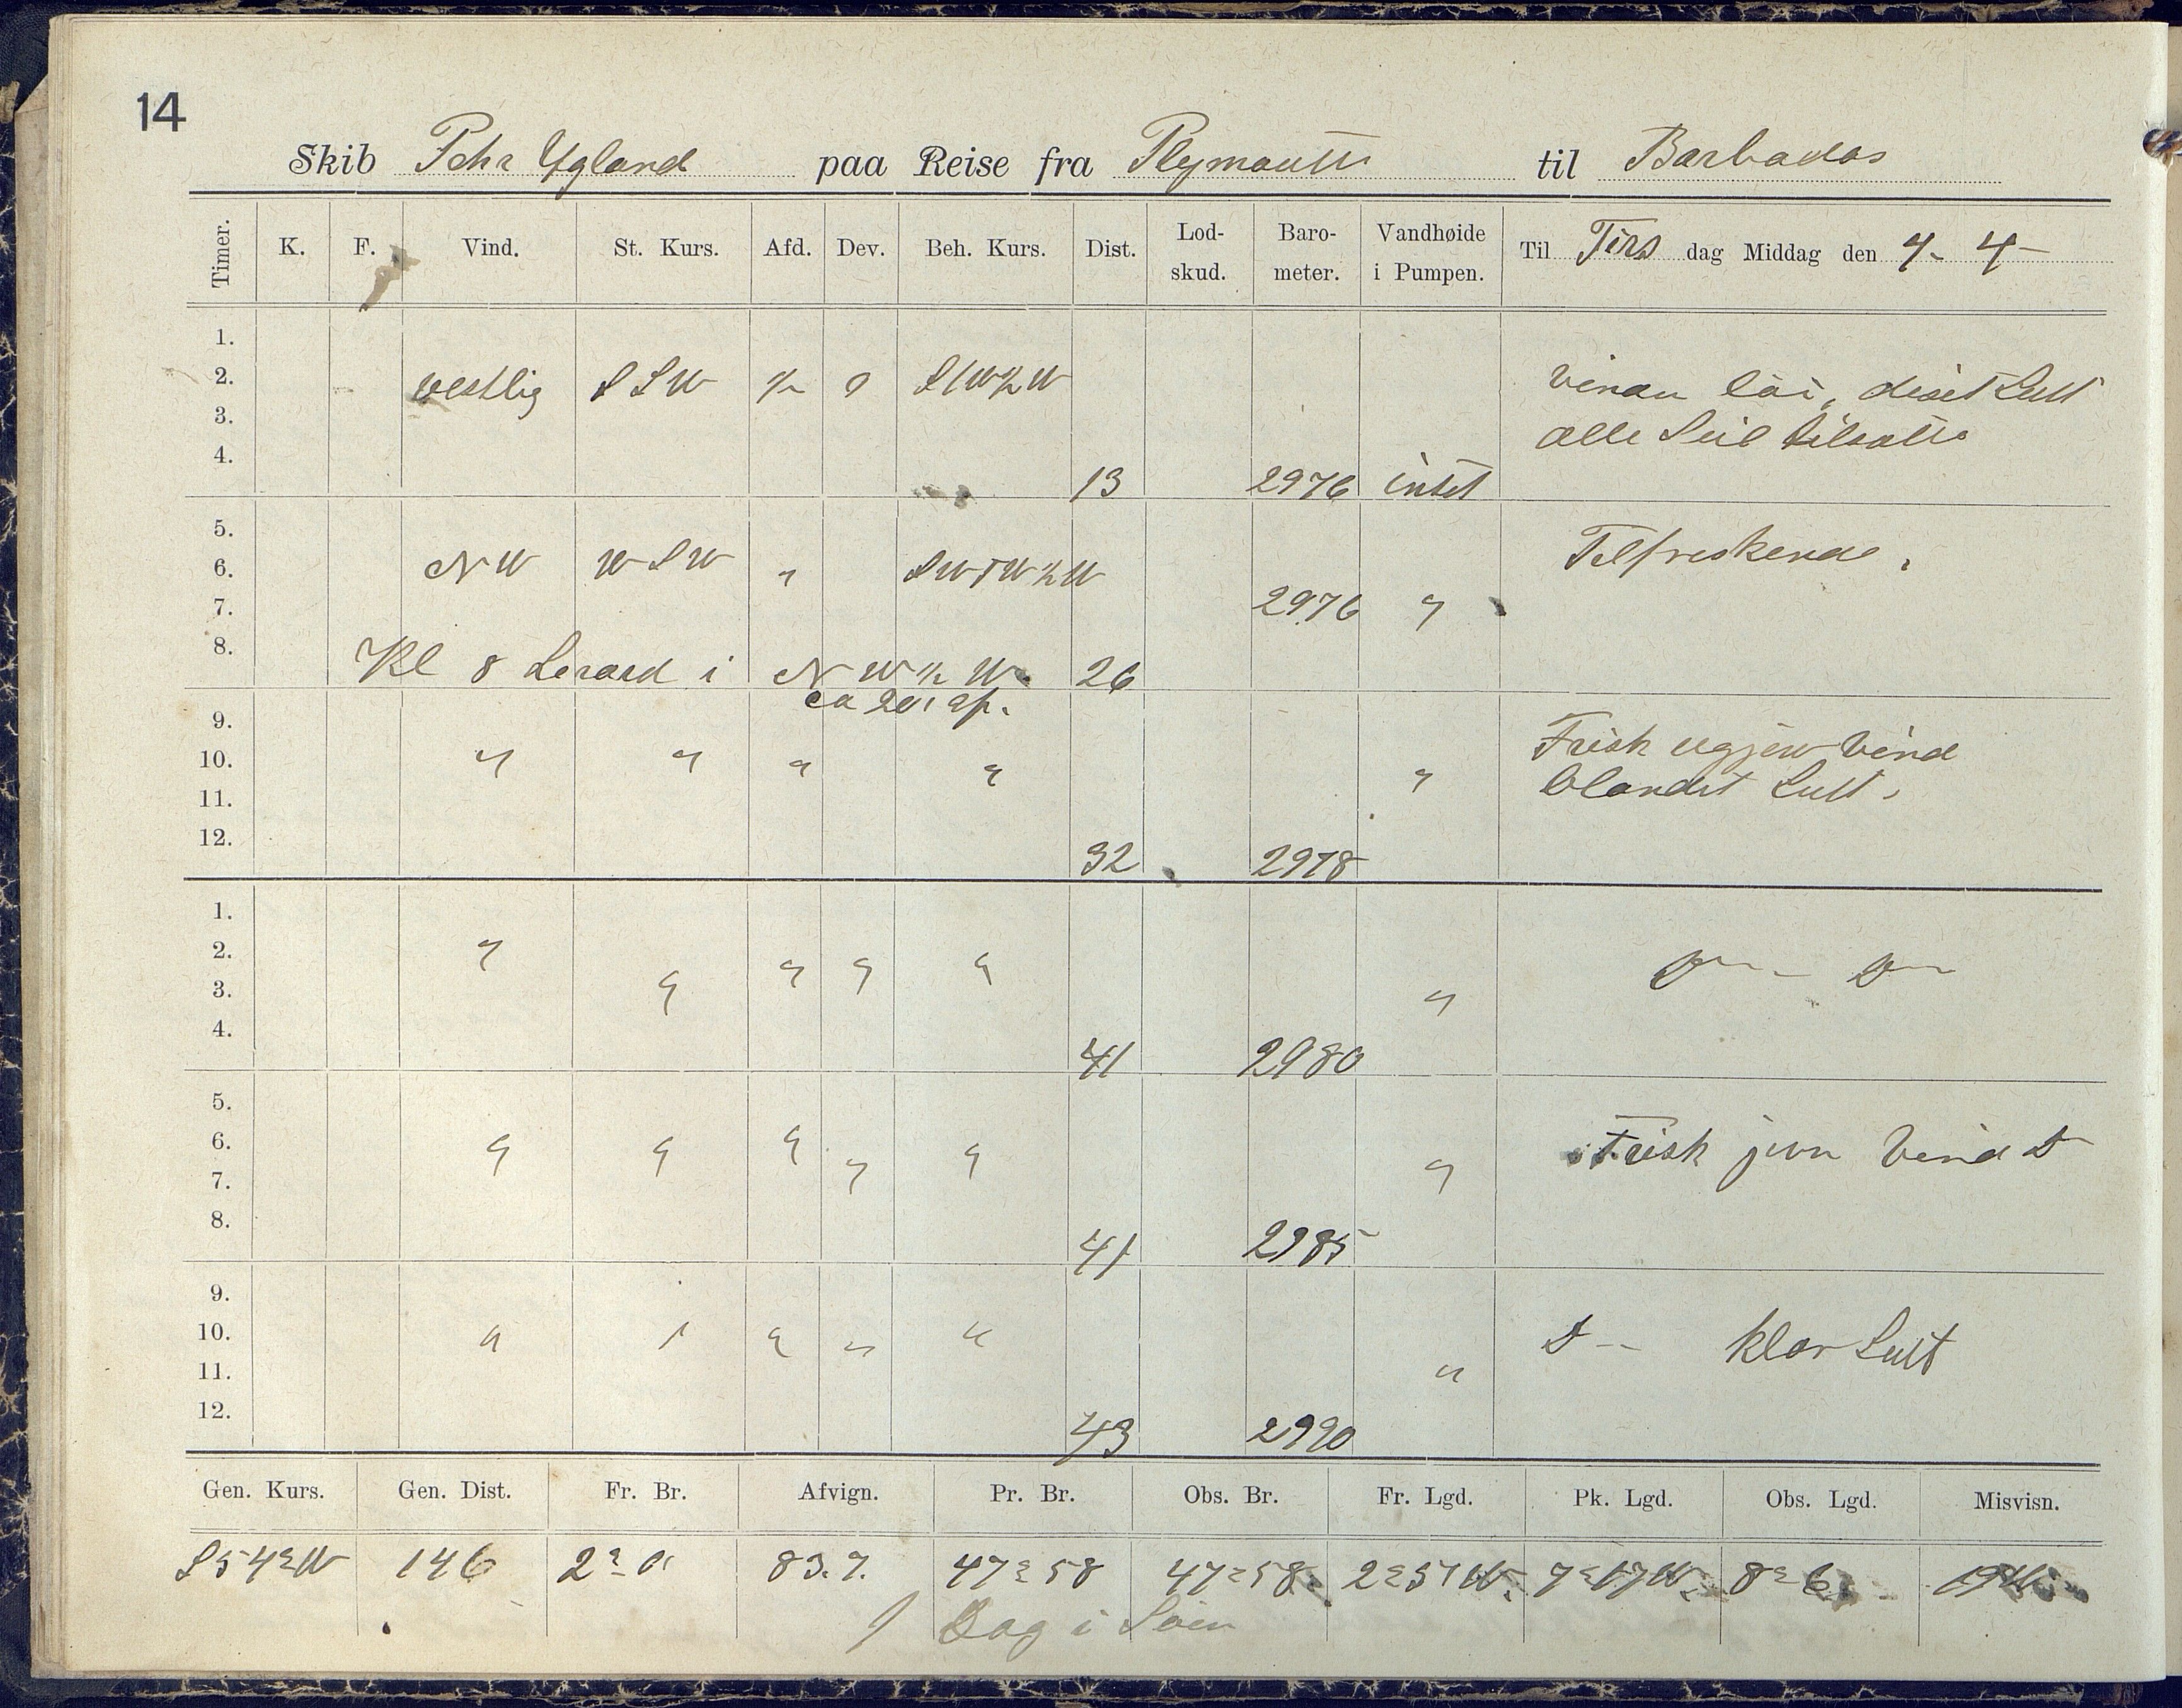 14
Skib Pehr Ugland paa Reise fra Plymouth til Barbados
Timer. K. F. Vind. St. Kurs. Afd. Dev. Beh. Kurs. Dist. Lod- skud. Baro- meter. Vandhøide i Pumpen. Til Tirs dag Middag den 4- 4-
1.
2. vestlig SSW ½ 0 StW½W Vinden løi, diset Luft
3. alle Seil tilsatte
4. 13 2976 intet
5.
6. NW WSW " SWtW½W Tilfriskende.
7. 2976 "
8. Kl 8 Lizard i NW½W 26
ca 20 af.
9. Frisk ujevn Vind
10. " " " " " blandet Luft.
11.
12. 32 2978
1.
2. " " " " " D— D—
3. "
4. 41 2980
5.
6. " " " " " " Frisk jevn Vind D
7.
8. 41 2985
9.
10. " " " " " D-- klar Luft
11. "
12. 43 2990
Gen. Kurs. Gen. Dist. Fr. Br. Afvign. Pr. Br. Obs. Br. Fr. Lgd. Pk. Lgd. Obs. Lgd. Misvisn.
S54°W 146 83.7. 47°58 47°58 2°57W 7°17W 8°6
1 Dag i Søen